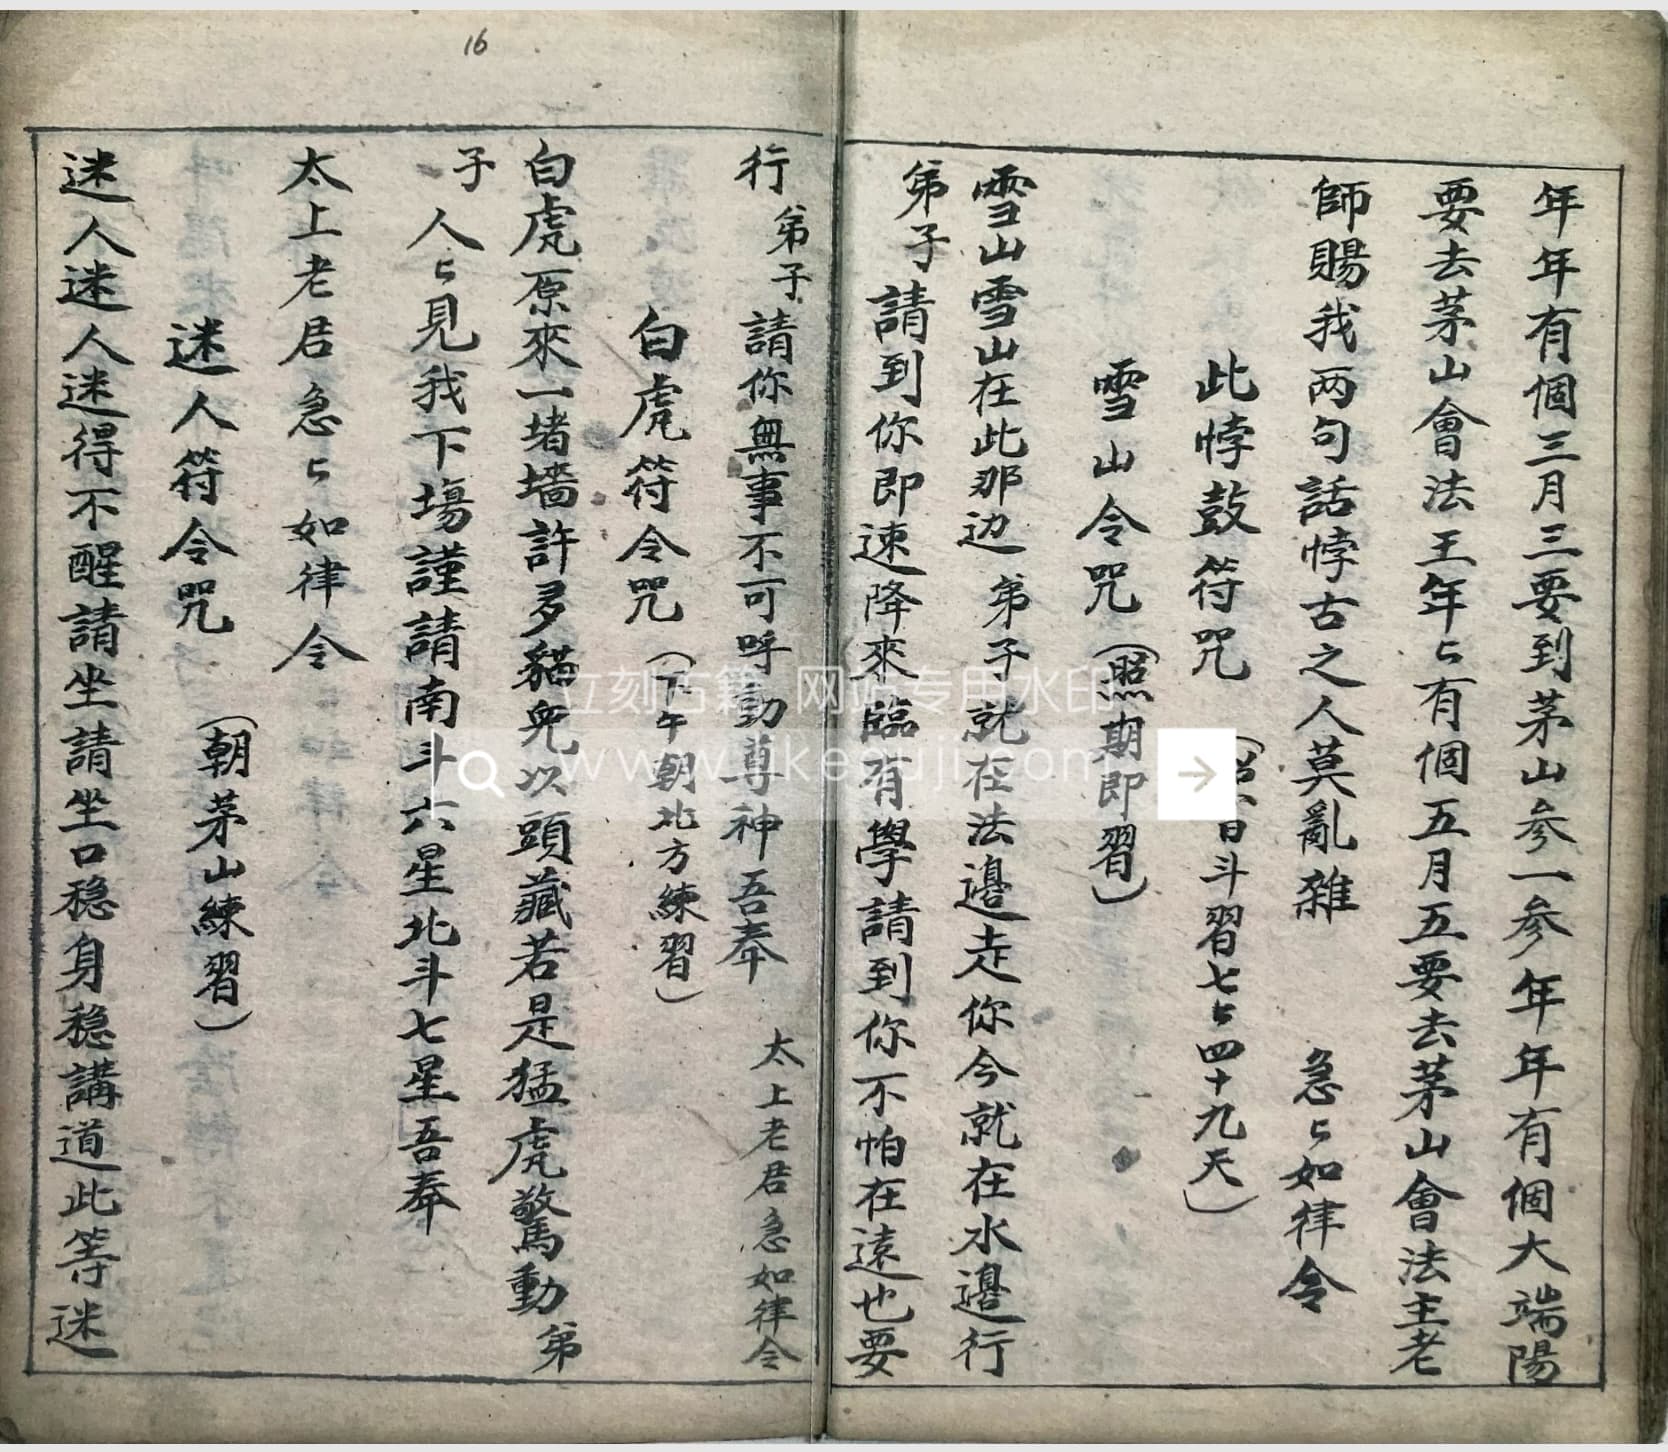 年年有個三月三要到茅山参一参年年有個大端陽
要去茅山會法王年々有個五月五要去茅山會法主老
師賜我两句話悖古之人莫亂雜 急々如律令
此悖鼓符咒 日斗習七々四十九天）
雪山令咒（照期即習）
雪山雪山在此那边弟子就在法邉走你今就在水邉行
弟子請到你即速降來臨有學請到你不怕在遠也要
行弟子請你無事不可呼動尊神吾奉 太上老君急如律令
白虎符令咒（下午朝北方練習）
白虎原來一堵墻許多貓兜以頭藏若是猛虎驚動弟
子人々見我下塲謹請南斗六星北斗七星吾奉
太上老君急々如律令
迷人符令咒（朝茅山練習）
迷人迷人迷得不醒請坐請坐口稳身稳講道此等迷
16
立刻古籍 网站专用水印